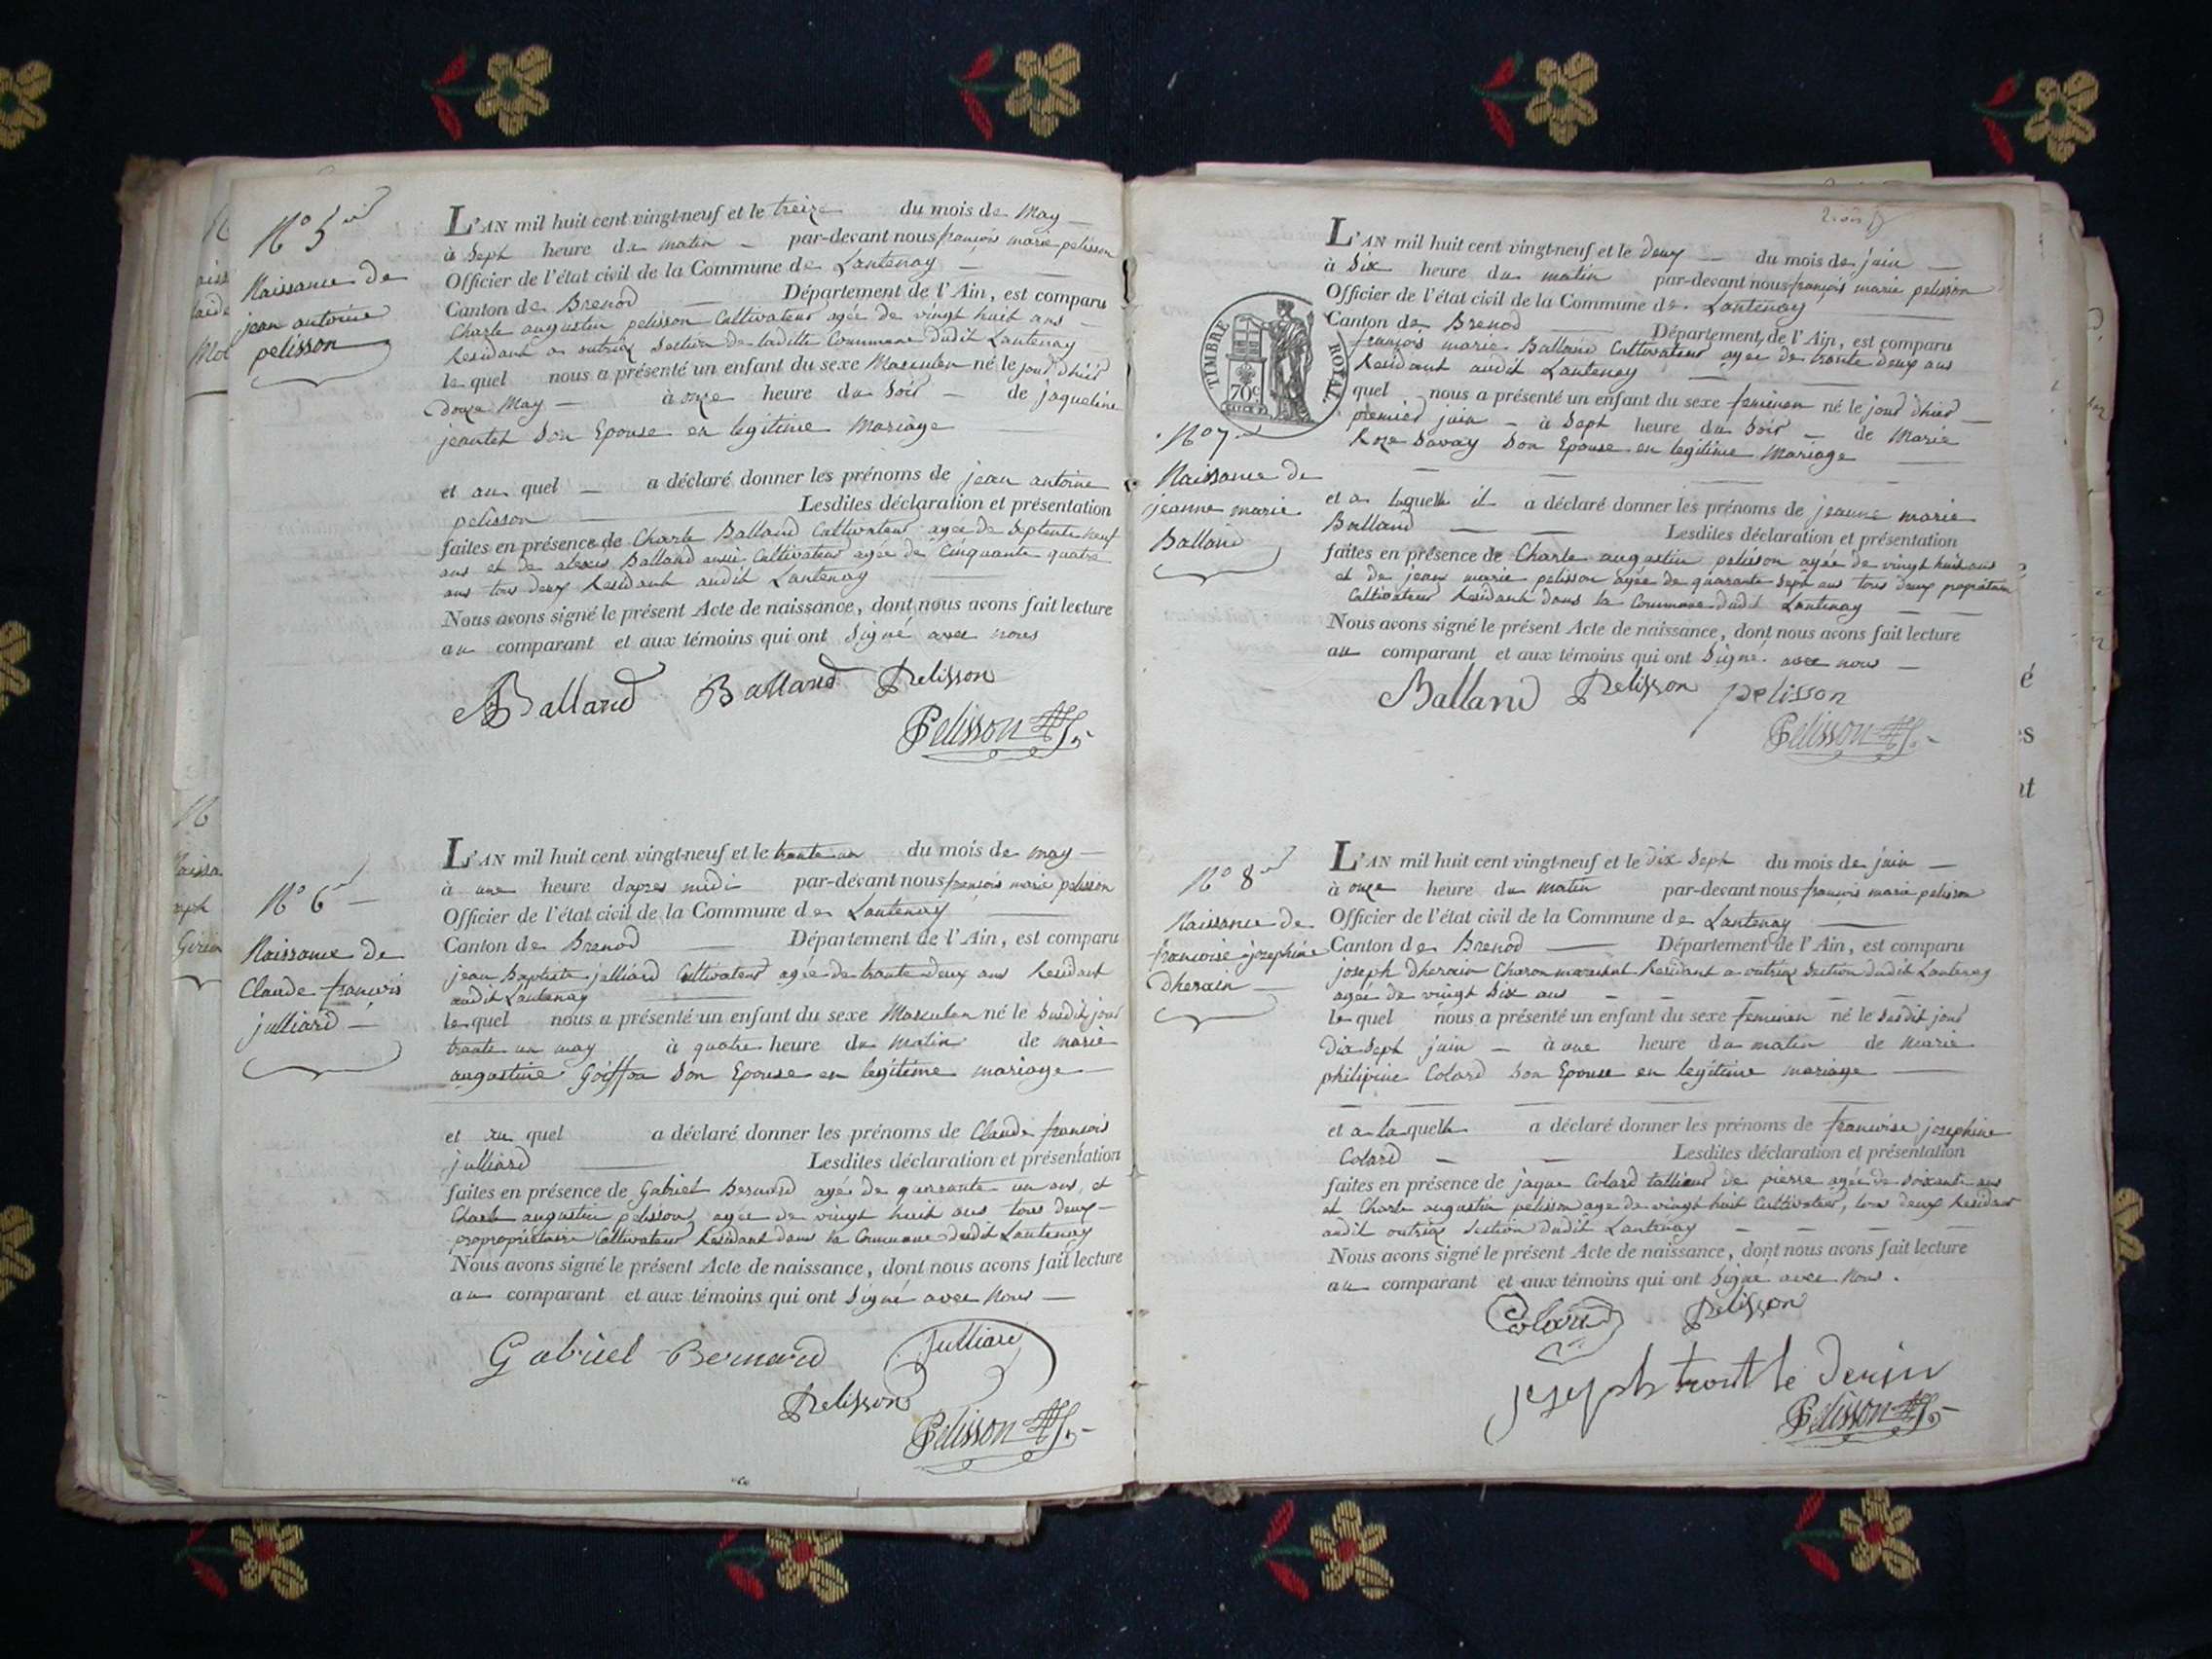 N° 5
Naissance de
jean antoine
pelisson
L'AN mil huit cent vingt-neuf et le treize du mois de May
à Sept heure du matin par-devant nous françois marie pelisson
Officier de l'état civil de la Commune de Lantenay
Canton de Brenod Département de l'Ain, est comparu
Charle augustin pelisson Cultivateur agée de vingt huit ans
Residant a outriaz Section de ladite Commune dudit Lantenay
le quel nous a présenté un enfant du sexe Masculin né le jour d'hier
douze May à onze heure du Soir de jaqueline
jeantet Son Epouse en legitime Mariage
et au quel a déclaré donner les prénoms de jean antoine
pelisson Lesdites déclaration et présentation
faites en présence de Charle Balland Cultivateur agée de Septente neuf
ans et de alexis Balland aussi Cultivateur agée de Cinquante quatre
ans tous deux Residant audit Lantenay
Nous avons signé le présent Acte de naissance, dont nous avons fait lecture
au comparant et aux témoins qui ont Signé avec nous
Balland Balland Pelisson
Pelisson
N° 6
Naissance de
Claude françois
julliard
L'AN mil huit cent vingt-neuf et le trante un du mois de may
à une heure d'apres midi par-devant nous françois marie pelisson
Officier de l'état civil de la Commune de Lantenay
Canton de Brenod Département de l'Ain, est comparu
jean Baptiste julliard Cultivateur agée de trante deux ans Residant
audit Lantenay
le quel nous a présenté un enfant du sexe Masculin né le Susdit jour
trante un may à quatre heure du Matin de marie
augustine Goiffon Son Epouse en legitime mariage
et au quel a déclaré donner les prénoms de Claude françois
julliard Lesdites déclaration et présentation
faites en présence de Gabriel Bernard agée de quarante un ans, et
Charle augustin pelisson agée de vingt huit ans tous deux
propropriétaire Cultivateur Residant dans la Commune dudit Lantenay
Nous avons signé le présent Acte de naissance, dont nous avons fait lecture
au comparant et aux témoins qui ont Signé avec Nous
Gabriel Bernard Julliard
Pelisson
Pelisson
TIMBRE ROYAL
70c
N° 7
Naissance de
jeanne marie
Balland
L'AN mil huit cent vingt-neuf et le deux du mois de juin
à Six heure du matin par-devant nous françois marie pelisson
Officier de l'état civil de la Commune de Lantenay
Canton de Brenod Département de l'Ain, est comparu
françois marie Balland Cultivateur agée de trante deux ans
Residant audit Lantenay
quel nous a présenté un enfant du sexe feminin né le jour d'hier
premier juin à Sept heure du Soir de Marie
Roze Savay Son Epouse en legitime Mariage
et a laquelle il a déclaré donner les prénoms de jeanne marie
Balland Lesdites déclaration et présentation
faites en présence de Charle augustin pelisson agée de vingt huit ans
et de jean marie pelisson agée de quarante Sept ans tous deux propriétaire
Cultivateur Residant dans la Commune dudit Lantenay
Nous avons signé le présent Acte de naissance, dont nous avons fait lecture
au comparant et aux témoins qui ont Signé avec nous
Balland Pelisson pelisson
Pelisson
N° 8
Naissance de
francoise josephine
Dherain
L'AN mil huit cent vingt-neuf et le dix Sept du mois de juin
à onze heure du matin par-devant nous françois marie pelisson
Officier de l'état civil de la Commune de Lantenay
Canton de Brenod Département de l'Ain, est comparu
joseph Dherain Charon marechal Residant a outriaz Section dudit Lantenay
agée de vingt Six ans
le quel nous a présenté un enfant du sexe feminin né le Susdit jour
dix Sept juin à une heure du matin de Marie
philipine Colard Son Epouse en legitime mariage
et a la quelle a déclaré donner les prénoms de francoise josephine
Colard Lesdites déclaration et présentation
faites en présence de jaque Colard tallieur de pierre agée de Soixante ans
et Charle augustin pelisson age de vingt huit Cultivateur, tous deux Residant
audit outriaz Section dudit Lantenay
Nous avons signé le présent Acte de naissance, dont nous avons fait lecture
au comparant et aux témoins qui ont Signé avec Nous.
Colard Pelisson
Pelisson